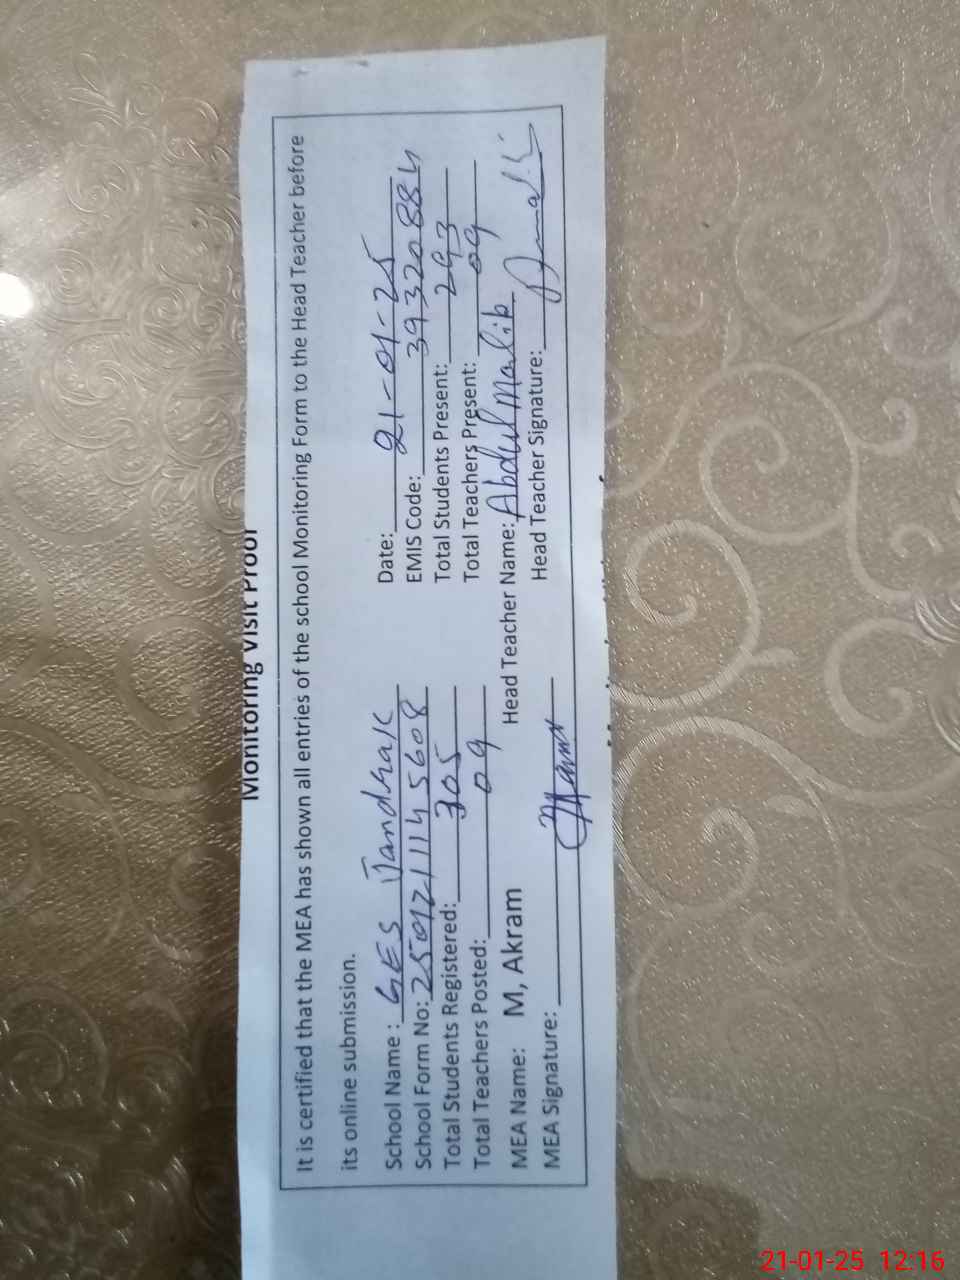 Monitoring Visit Proof
It is certified that the MEA has shown all entries of the school Monitoring Form to the Head Teacher before
its online submission.
School Name : GES Jandrak Date: 21-01-25
School Form No: 2501211145608 EMIS Code: 39320884
Total Students Registered: 305 Total Students Present: 293
Total Teachers Posted: 09 Total Teachers Present: 09
MEA Name: M, Akram Head Teacher Name: Abdul Malik
MEA Signature: Head Teacher Signature:
21-01-25 12:16